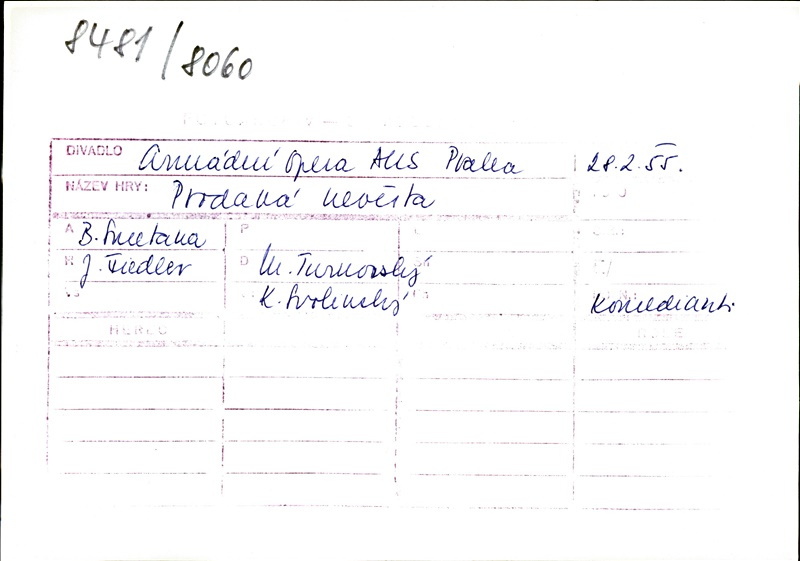 8481/8060
DIVADLO Armádní Opera AUS Praha 28.2.55.
NÁZEV HRY: Prodaná nevěsta
A B. Smetana P
R J. Fiedler D M. Turnovský
K. Svolinský Komedianti
HEREC